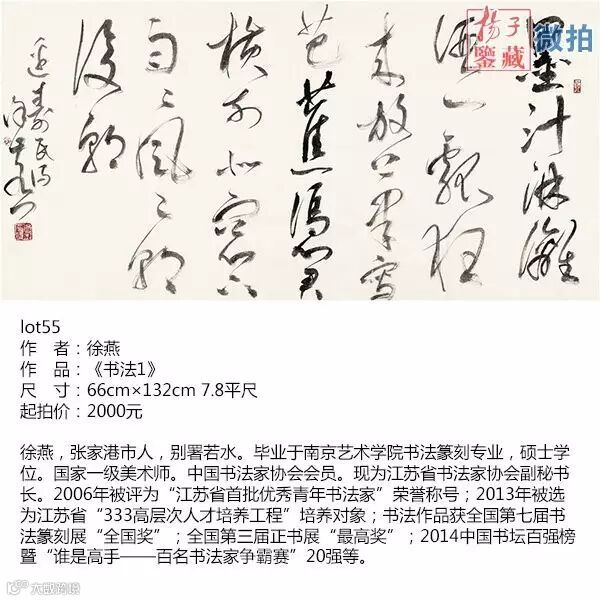 墨汁淋漓
酒一瓢狂
來放筆寫
芭蕉憑君
橫
雨〻風〻朝
復朝
邊壽民句
徐燕
揚子
鑒藏
微拍
lot55
作 者：徐燕
作 品：《书法1》
尺 寸：66cm×132cm 7.8平尺
起拍价：2000元
徐燕，张家港市人，别署若水。毕业于南京艺术学院书法篆刻专业，硕士学
位。国家一级美术师。中国书法家协会会员。现为江苏省书法家协会副秘书
长。2006年被评为“江苏省首批优秀青年书法家”荣誉称号；2013年被选
为江苏省“333高层次人才培养工程”培养对象；书法作品获全国第七届书
法篆刻展“全国奖”；全国第三届正书展“最高奖”；2014中国书坛百强榜
暨“谁是高手——百名书法家争霸赛”20强等。
大威跨境